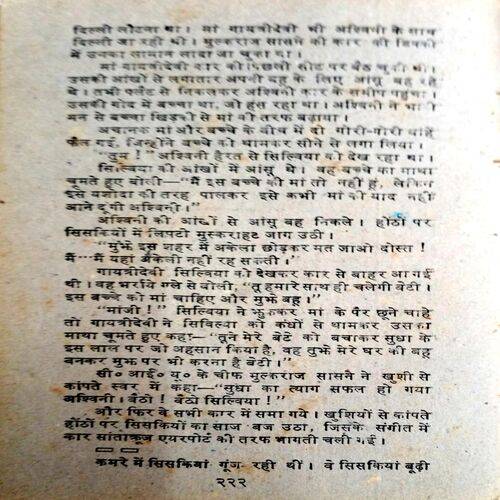 दिल्ली लौटना था। मां गायत्रीदेवी भी अश्विनी के साथ
दिल्ली जा रही थी। मुल्कराज सासने की कार की डिक्की
में उनका सामान लादा जा चुका था।
मां गायत्रीदेवी कार की पिछली सीट पर बैठ चुकी थी।
उसकी आंखों से लगातार अपनी बहू के लिए आंसू बह रहे
थे। तभी फ्लैट से निकलकर अश्विनी कार के समीप पहुंचा।
उसकी गोद में बच्चा था, जो हंस रहा था। अश्विनी ने भारी
मन से बच्चा खिड़की से मां की तरफ बढ़ाया।
अचानक मां और बच्चे के बीच में दो गोरी-गोरी बांहें
फैल गईं, जिन्होंने बच्चे को थामकर सीने से लगा लिया।
"तुम!" अश्विनी हैरत से सिल्विया को देख रहा था।
सिल्विया की आंखों में आंसू थे। वह बच्चे का माथा
चूमते हुए बोली—"मैं इस बच्चे की मां तो नहीं हूं, लेकिन
इसे यशोदा की तरह पालकर इसे कभी मां की याद नहीं
आने दूंगी अश्विनी।"
अश्विनी की आंखों से आंसू बह निकले। होंठों पर
सिसकियों में लिपटी मुस्कराहट जाग उठी।
"मुझे इस शहर में अकेला छोड़कर मत जाओ दोस्त!
मैं—मैं यहां अकेली नहीं रह सकती।"
गायत्रीदेवी सिल्विया को देखकर कार से बाहर आ गई
थी। वह भर्राये गले से बोली, "तू हमारे साथ ही चलेगी बेटी।
इस बच्चे को मां चाहिए और मुझे बहू।"
"मांजी!" सिल्विया ने झुककर मां के पैर छूने चाहे
तो गायत्रीदेवी ने सिल्विया को कंधों से थामकर उसका
माथा चूमते हुए कहा—"तूने मेरे बेटे को बचाकर सुधा के
इस लाल पर जो अहसान किया है, वह तुझे मेरे घर की बहू
बनकर मुझ पर भी करना है बेटी।"
सी० आई० यू० के चीफ मुल्कराज सासने ने खुशी से
कांपते स्वर में कहा—"सुधा का त्याग सफल हो गया
अश्विनी। बैठो! बैठो सिल्विया!"
और फिर वे सभी कार में समा गये। खुशियों से कांपते
होंठों पर सिसकियों का साज बज उठा, जिसके संगीत में
कार सांताक्रूज एयरपोर्ट की तरफ भागती चली गई।
कमरे में सिसकियां गूंज रही थीं। वे सिसकियां बूढ़ी
२२२